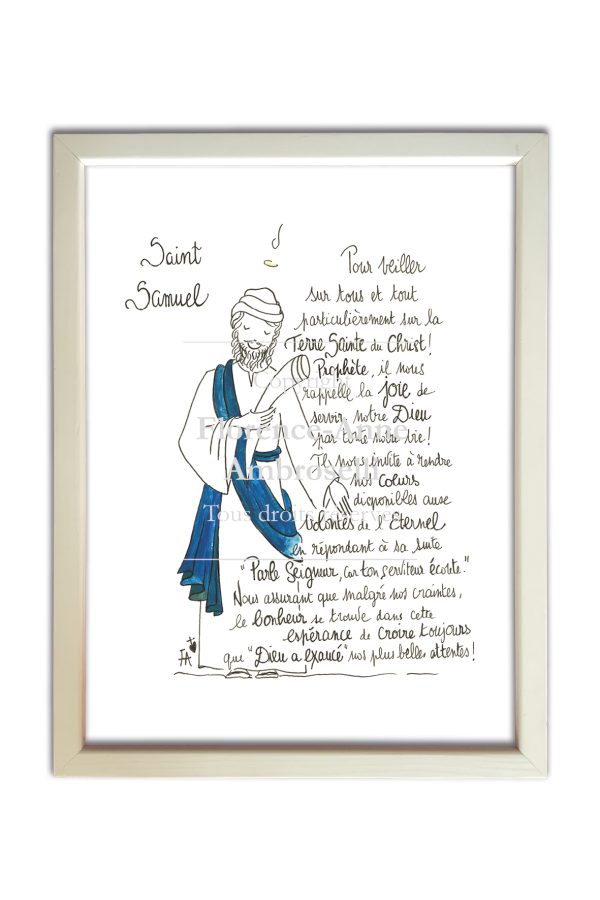 Saint
Samuel
Pour veiller
sur tous et tout
particulièrement sur la
Terre Sainte du Christ!
Prophète, il nous
rappelle la joie de
servir notre Dieu
par toute notre vie!
Il nous invite à rendre
nos cœurs
disponibles aux
volontés de l'Eternel
en répondant à sa suite
"Parle Seigneur, car ton serviteur écoute."
Nous assurant que malgré nos craintes,
le bonheur se trouve dans cette
espérance de croire toujours
que "Dieu a exaucé" nos plus belles attentes!
FA
Copyright
Florence-Anne
Ambroselli
Tous droits réservés